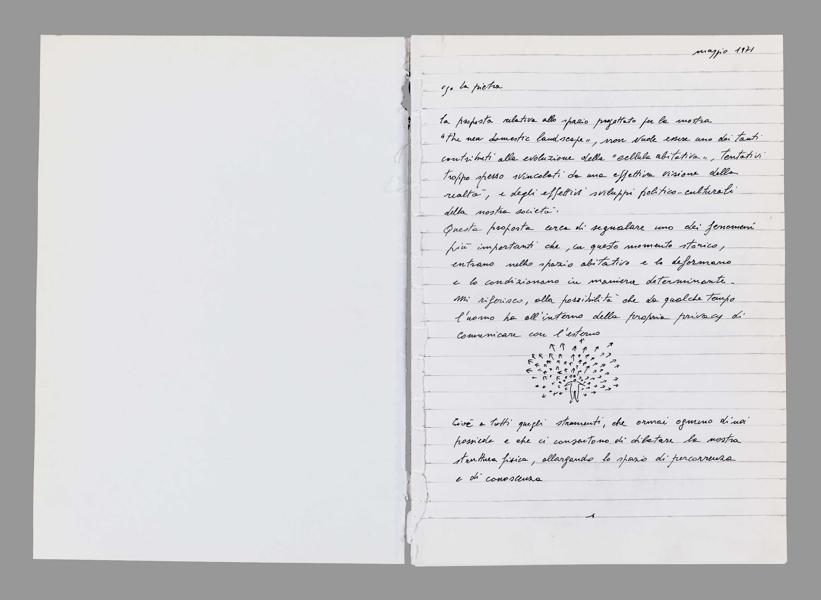 maggio 1971
ugo la pietra
La proposta relativa allo spazio progettato per la mostra
"The new domestic landscape", non vuole essere uno dei tanti
contributi alla evoluzione della "cellula abitativa", tentativi
troppo spesso svincolati da una effettiva visione della
realtà, e degli effettivi sviluppi politico-culturali
della nostra società.
Questa proposta cerca di segnalare uno dei fenomeni
più importanti che, in questo momento storico,
entrano nello spazio abitativo e lo deformano
e lo condizionano in maniera determinante.
Mi riferisco, alla possibilità che da qualche tempo
l'uomo ha all'interno della propria privacy di
comunicare con l'esterno
Cioè a tutti quegli strumenti, che ormai ognuno di noi
possiede e che ci consentono di dilatare la nostra
struttura fisica, allargando lo spazio di percorrenza
e di conoscenza
1